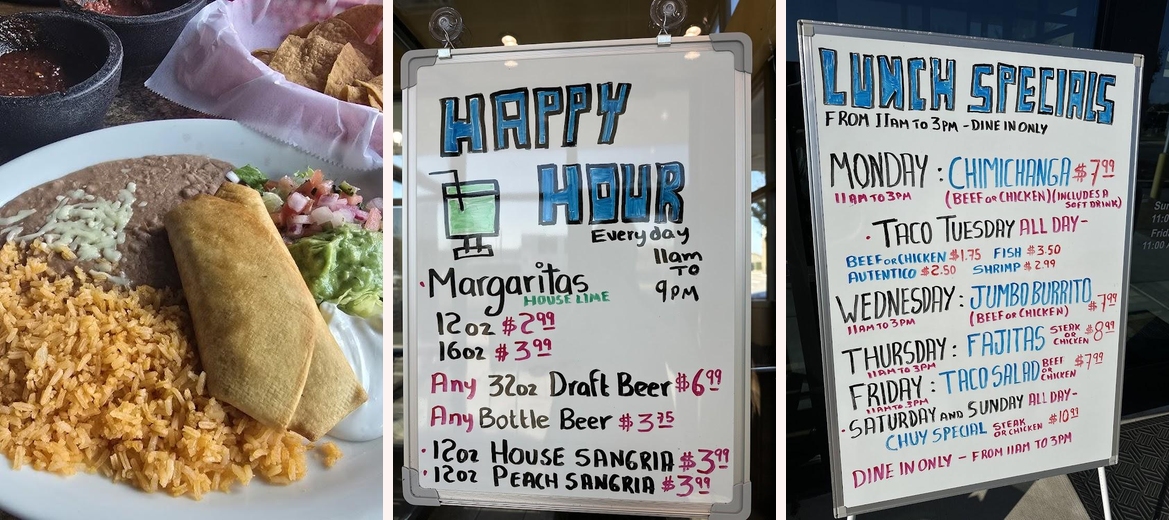 HAPPY
HOUR
Everyday
11am
TO
9PM
·Margaritas
HOUSE LIME
12oz $2.99
16oz $3.99
Any 32oz Draft Beer $6.99
Any Bottle Beer $3.75
·12oz HOUSE SANGRIA $3.99
·12oz PEACH SANGRIA $3.99
LUNCH SPECIALS
FROM 11AM TO 3PM - DINE IN ONLY
MONDAY: CHIMICHANGA $7.99
11AM TO 3PM (BEEF OR CHICKEN)(INCLUDES A SOFT DRINK)
·TACO TUESDAY ALL DAY-
BEEF OR CHICKEN $1.75 FISH $3.50
AUTENTICO $2.50 SHRIMP $2.99
WEDNESDAY: JUMBO BURRITO $7.99
11AM TO 3PM (BEEF OR CHICKEN)
THURSDAY: FAJITAS STEAK OR CHICKEN $8.99
11AM TO 3PM
FRIDAY: TACO SALAD BEEF OR CHICKEN $7.99
11AM TO 3PM
·SATURDAY AND SUNDAY ALL DAY-
CHUY SPECIAL STEAK OR CHICKEN $10.99
DINE IN ONLY - FROM 11AM TO 3PM